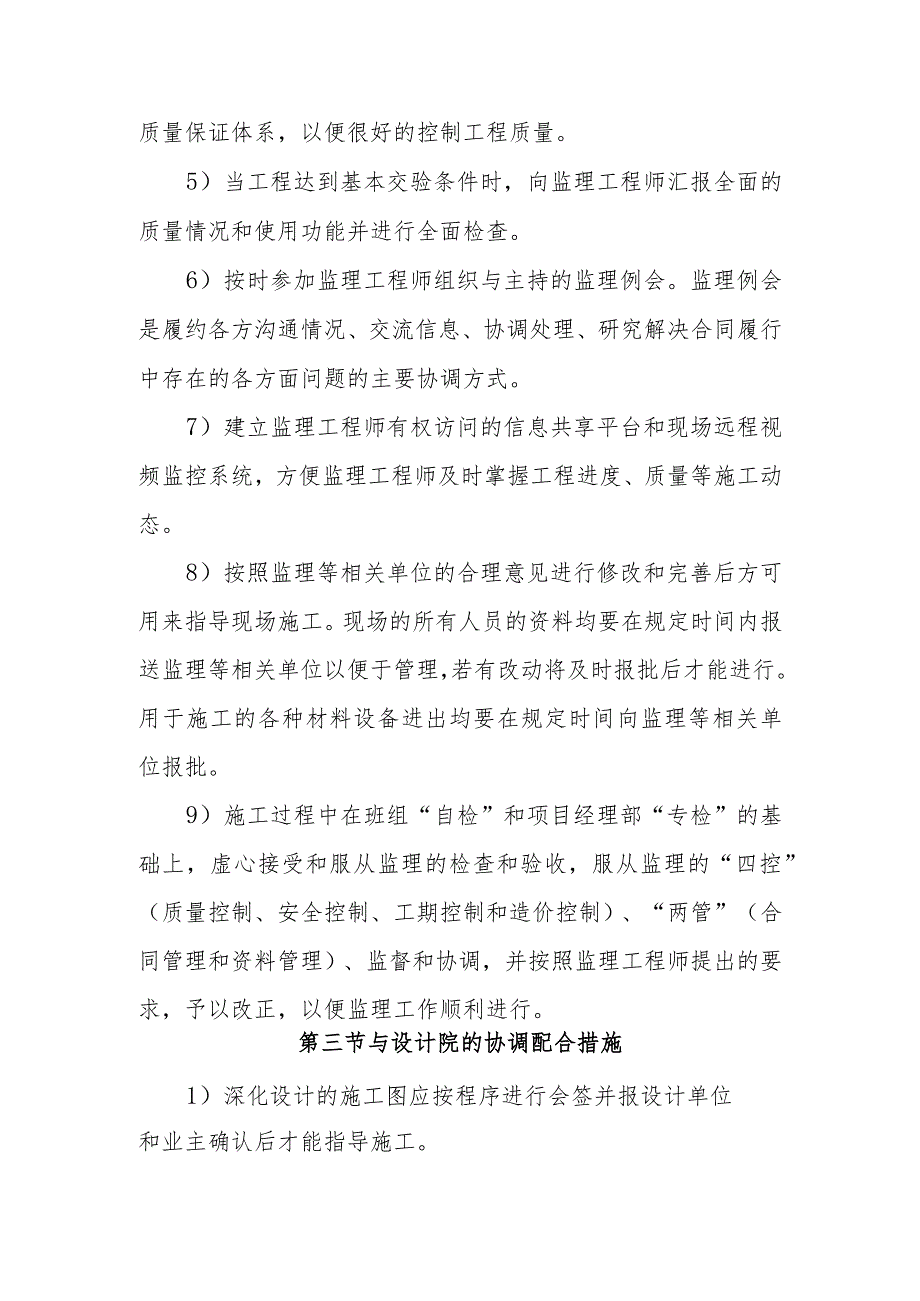 质量保证体系，以便很好的控制工程质量。
5）当工程达到基本交验条件时，向监理工程师汇报全面的
质量情况和使用功能并进行全面检查。
6）按时参加监理工程师组织与主持的监理例会。监理例会
是履约各方沟通情况、交流信息、协调处理、研究解决合同履行
中存在的各方面问题的主要协调方式。
7）建立监理工程师有权访问的信息共享平台和现场远程视
频监控系统，方便监理工程师及时掌握工程进度、质量等施工动
态。
8）按照监理等相关单位的合理意见进行修改和完善后方可
用来指导现场施工。现场的所有人员的资料均要在规定时间内报
送监理等相关单位以便于管理，若有改动将及时报批后才能进行。
用于施工的各种材料设备进出均要在规定时间向监理等相关单
位报批。
9）施工过程中在班组“自检”和项目经理部“专检”的基
础上，虚心接受和服从监理的检查和验收，服从监理的“四控”
（质量控制、安全控制、工期控制和造价控制）、“两管”（合
同管理和资料管理）、监督和协调，并按照监理工程师提出的要
求，予以改正，以便监理工作顺利进行。
第三节与设计院的协调配合措施
1）深化设计的施工图应按程序进行会签并报设计单位
和业主确认后才能指导施工。